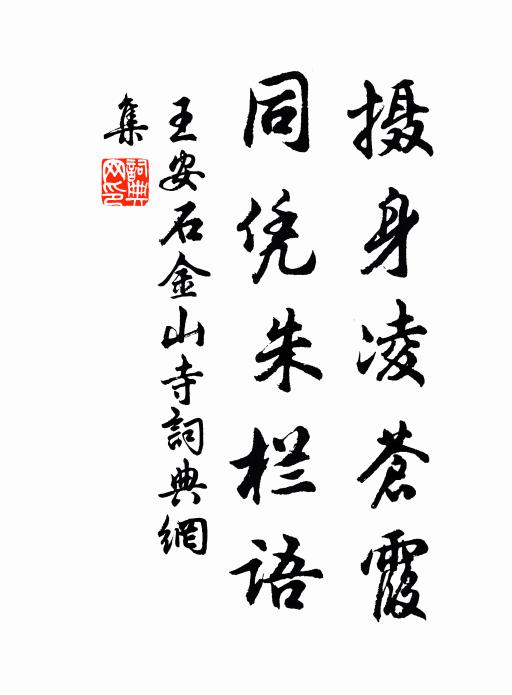 摄身凌苍霞
同凭朱栏语
王安石金山寺詞典網
集
詞典網印